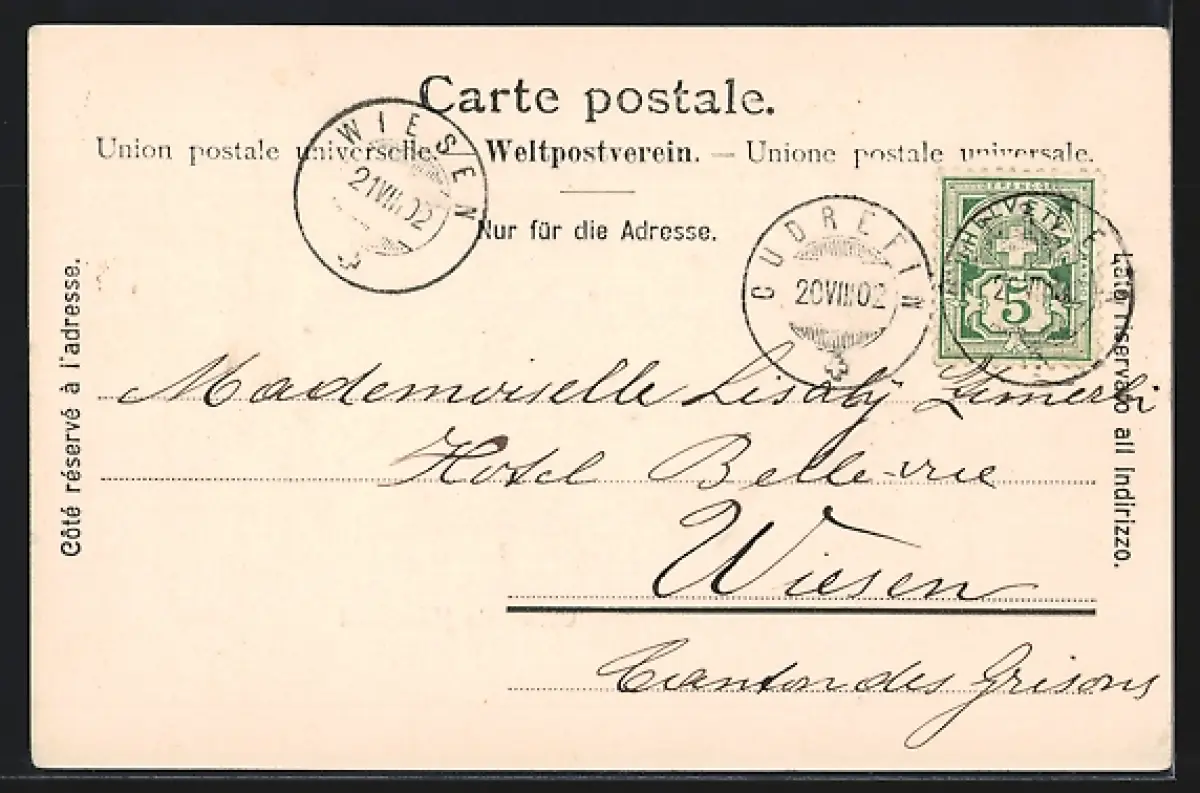 Carte postale.
Union postale universelle. — Weltpostverein. — Unione postale universale.
Nur für die Adresse.
Côté réservé à l'adresse.
Lato riservato all indirizzo.
WIESEN
21 VIII 02
CUDREFIN
20 VIII 02
FRANCO
HELVETIA
5
Mademoiselle Lisaly
Hotel Belle-vue
Wiesen
Canton des Grisons